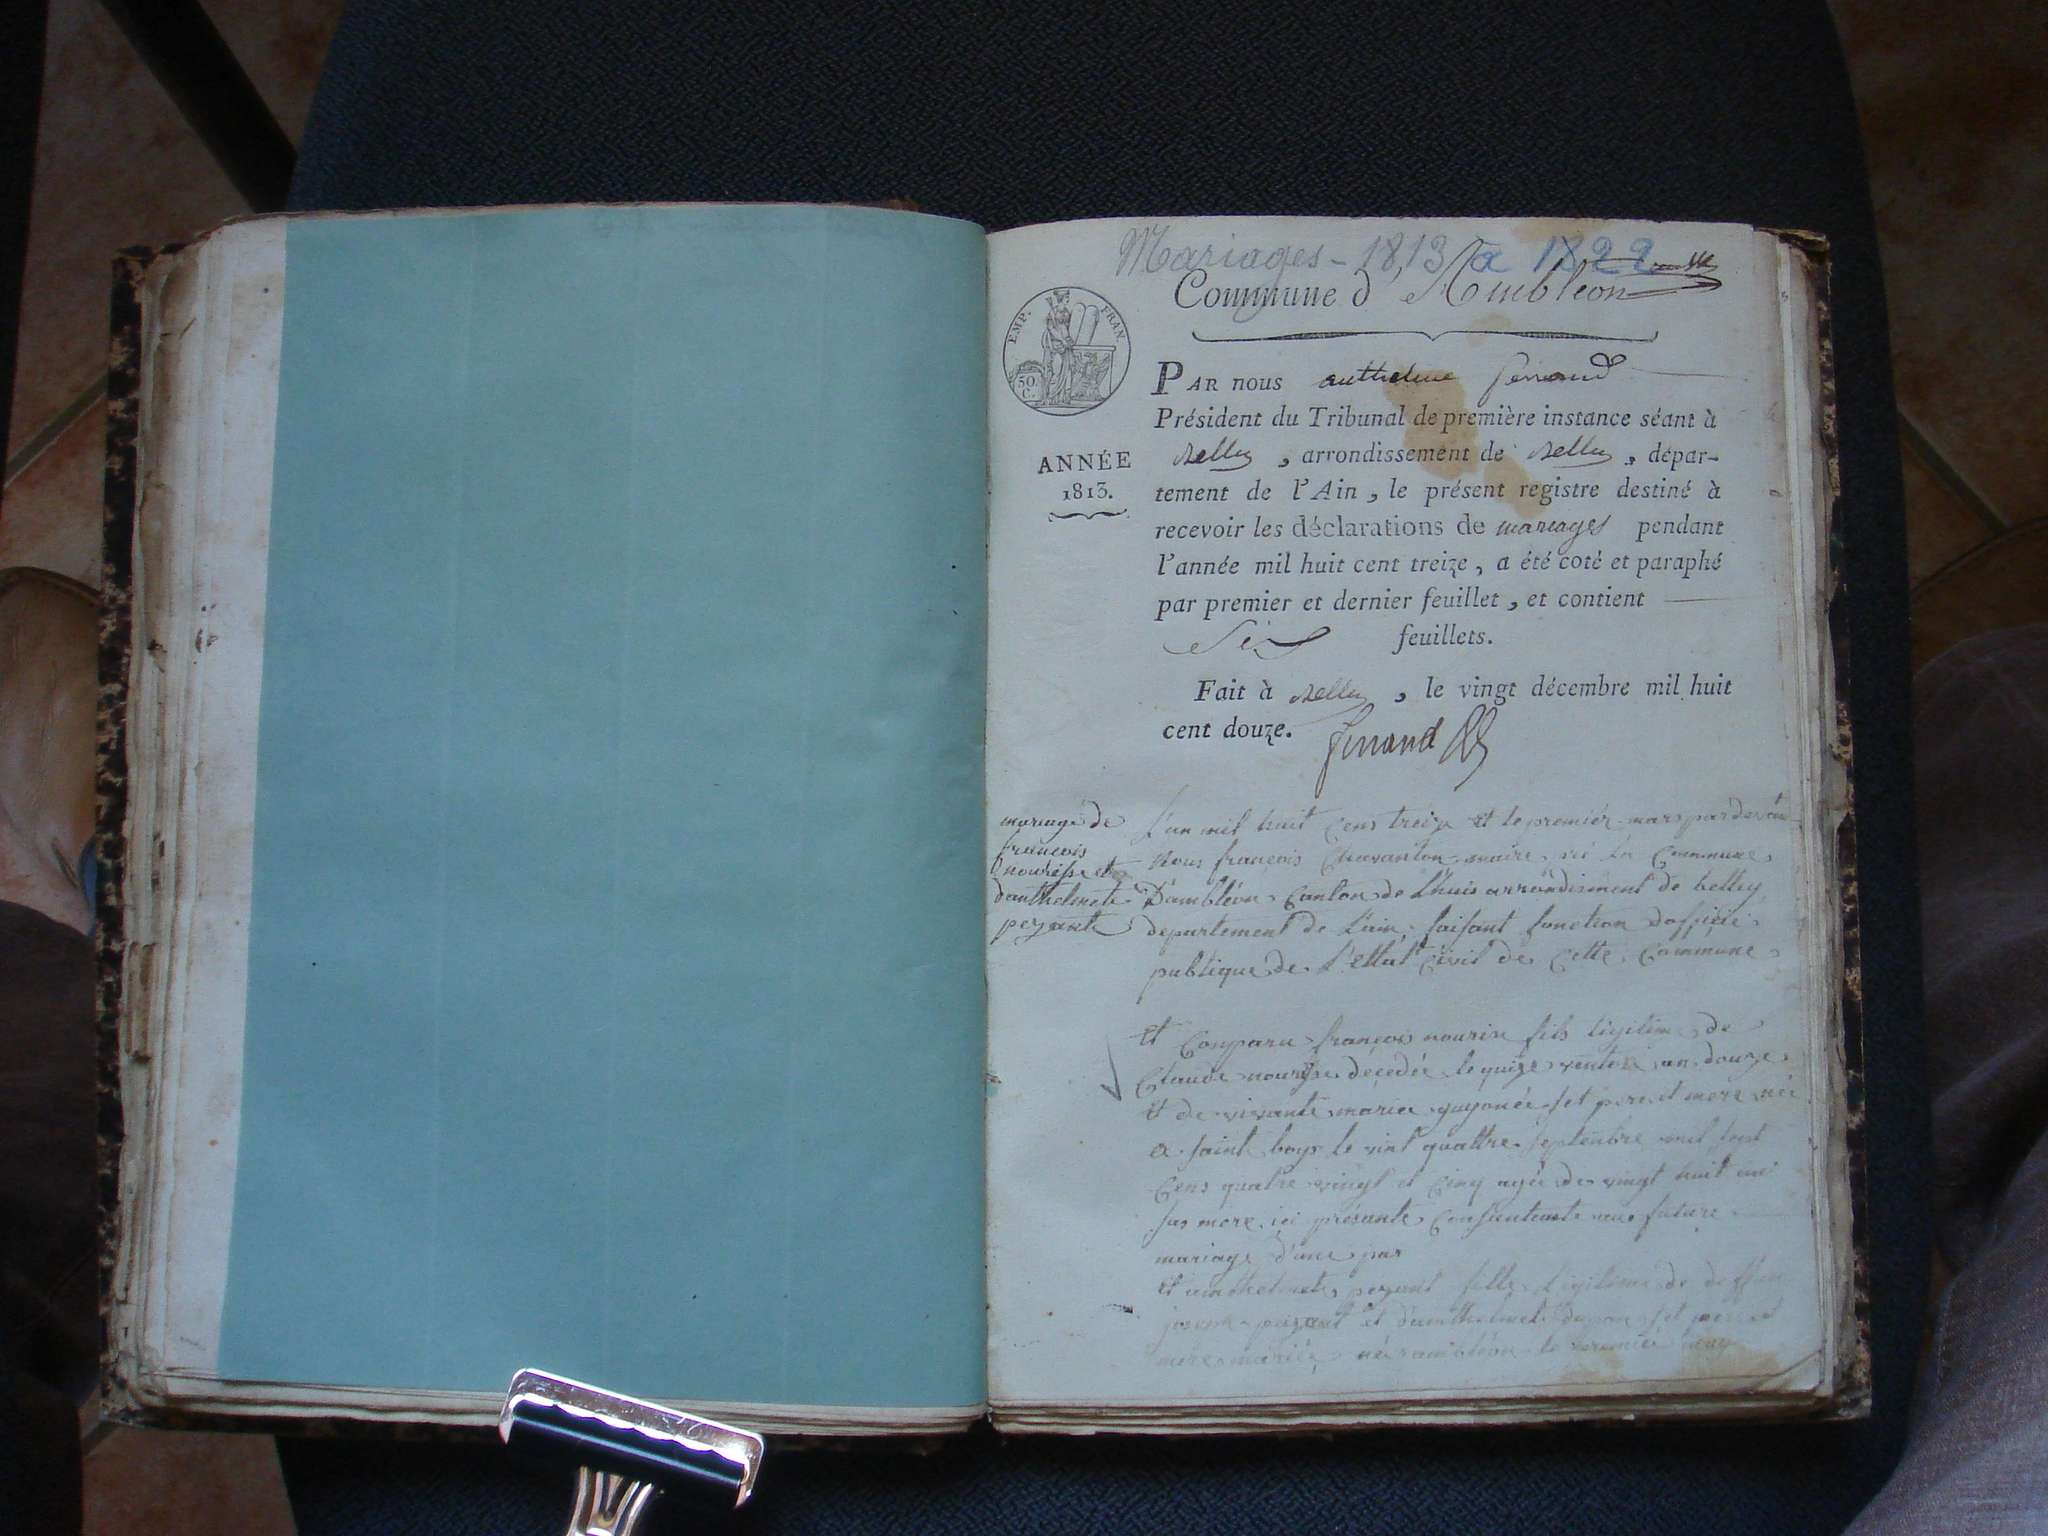 Mariages - 1813 a 1822
Commune d'Ambléon
EMP. FRAN.
50.
C.
PAR nous anthelme ferrand
Président du Tribunal de première instance séant à
ANNÉE
1813.
Belley, arrondissement de Belley, dépar-
tement de l'Ain, le présent registre destiné à
recevoir les déclarations de mariages pendant
l'année mil huit cent treize, a été coté et paraphé
par premier et dernier feuillet, et contient
Six feuillets.
Fait à Belley, le vingt décembre mil huit
cent douze. ferrand
mariage de
françois
nourisse et
d'anthelmete
pezante
L'an mil huit Cens treize et le premier mars pardevan
nous françois maire de la Commune
D'ambléon Canton de L'huis arrondisment de belley
departement de L'ain faisant fonction d'officié
publique de L'ettat Civil de Cette Commune
Et Conparu françois fils légitime de
Claude décédée le quize ventose an douze
et de vivante marie et mere née
a saint boys le vint quattre septenbre mil sept
Cens quatre vingt et Cinq agée de vingt huit
sas mere ici présante Consentente au future
mariage d'une par
Et anthelmete pezant fille légitime de
pezant et d'anthelmete
mere mariée née a ambléon le premier